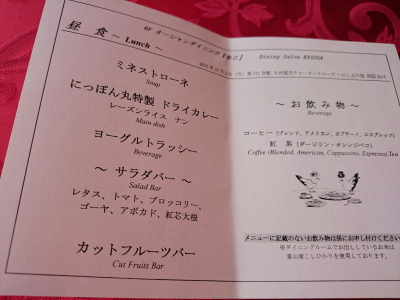 6F オーシャンダイニング『春日』 Dining Salon KASUGA
昼 食 ～ Lunch ～
ミネストローネ
Soup
にっぽん丸特製 ドライカレー
レーズンライス ナン
Main dish
ヨーグルトラッシー
Beverage
～ サラダバー ～
Salad Bar
レタス、トマト、ブロッコリー、
ゴーヤ、アボカド、紅芯大根
カットフルーツバー
Cut Fruits Bar
～ お 飲 み 物 ～
Beverage
コーヒー (ブレンド, アメリカン, カプチーノ, エスプレッソ)
紅 茶 (ダージリン・オレンジペコ)
Coffee (Blended, American, Cappuccino, Espresso), Tea
メニューに記載のないお飲み物は係にお申し付けください
※ダイニングルームでお出ししているお米は
富山県こしひかりを使用しております。